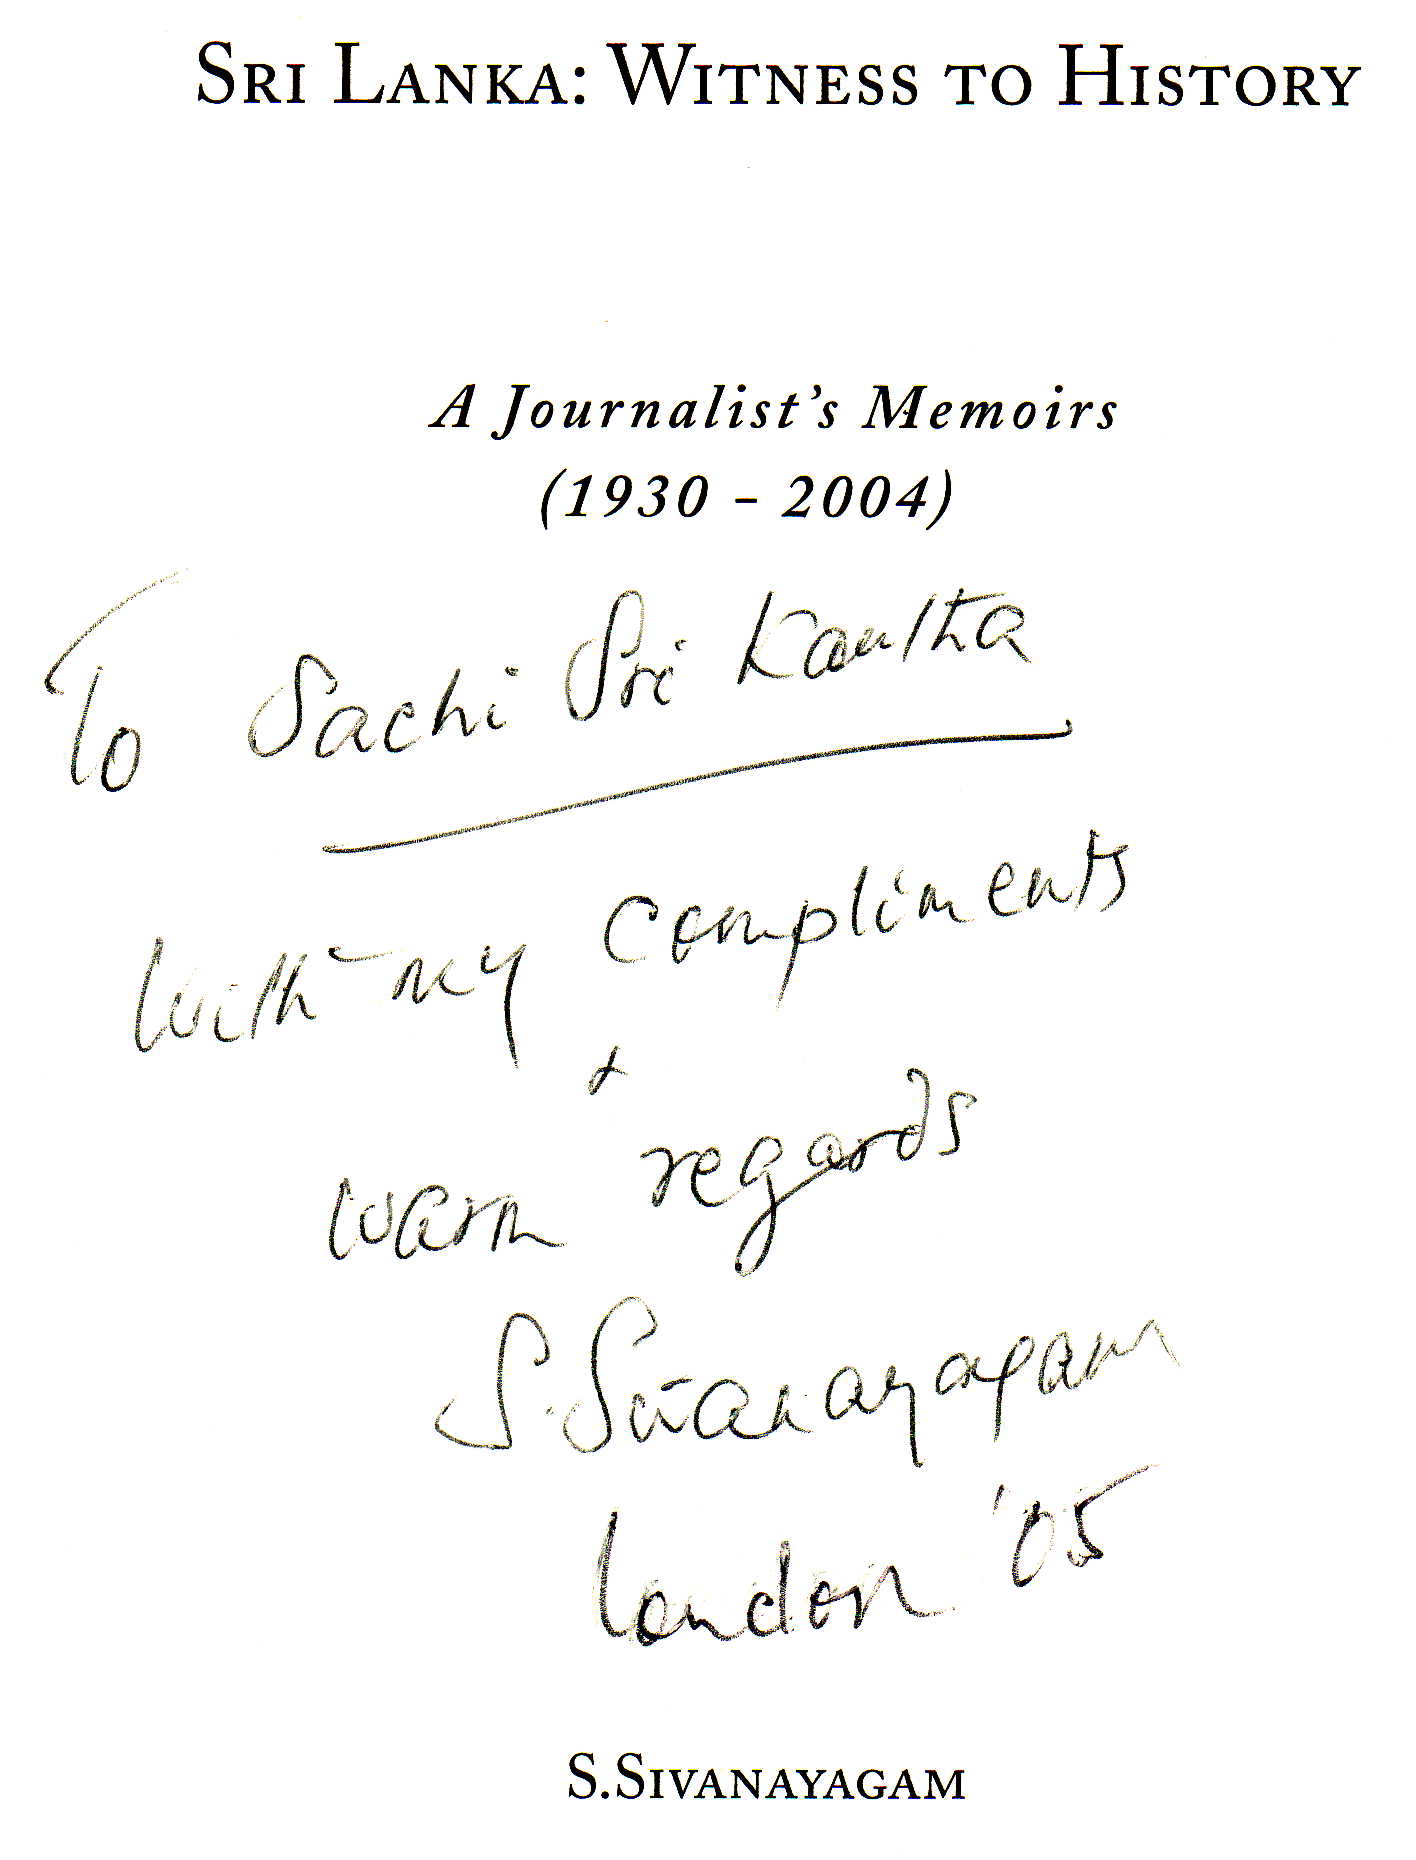 SRI LANKA: WITNESS TO HISTORY
A Journalist's Memoirs
(1930 - 2004)
To Sachi Sri Kantha
With my compliments
+
warm regards
S. Sivanayagam
London '05
S.SIVANAYAGAM